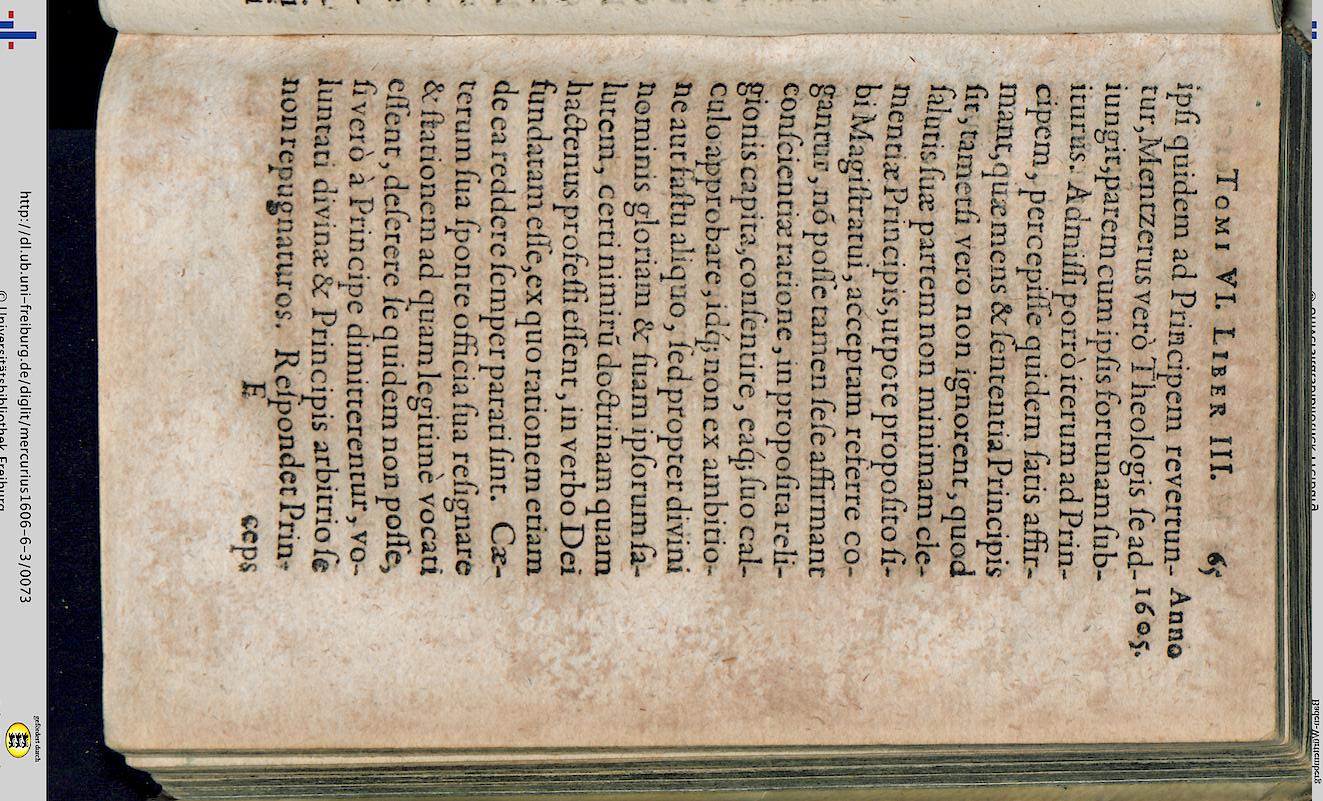 TOMI VI. LIBER III. 65
ipſi quidem ad Principem revertun- Anno
tur, Mentzerus verò Theologis ſe ad- 1605.
iungit, parem cum ipſis fortunam ſub-
iturus. Admiſſi porrò iterum ad Prin-
cipem, percepiſſe quidem ſatis affir-
mant, quæ mens & ſententia Principis
ſit, tametſi vero non ignorent, quod
ſalutis ſuæ partem non minimam cle-
mentiæ Principis, utpote propoſito ſi-
bi Magiſtratui, acceptam referre co-
gantur, nõ poſſe tamen ſeſe affirmant
conſcientiæ ratione, in propoſita reli-
gionis capita, conſentire, eaq́; ſuo cal-
culo approbare, idq́; non ex ambitio-
ne aut faſtu aliquo, ſed propter divini
nominis gloriam & ſuam ipſorum ſa-
lutem, certi nimirũ doctrinam quam
hactenus profeſſi eſſent, in verbo Dei
fundatam eſſe, ex quo rationem etiam
de ea reddere ſemper parati ſint. Cæ-
terum ſua ſponte officia ſua reſignare
& ſtationem ad quam legitimè vocati
eſſent, deſerere ſe quidem non poſſe,
ſi verò à Principe dimitterentur, vo-
luntati divinæ & Principis arbitrio ſe
non repugnaturos. Reſpondet Prin-
E ceps
http://dl.ub.uni-freiburg.de/diglit/mercurius1606-6-3/0073
© Universitätsbibliothek Freiburg
gefördert durch